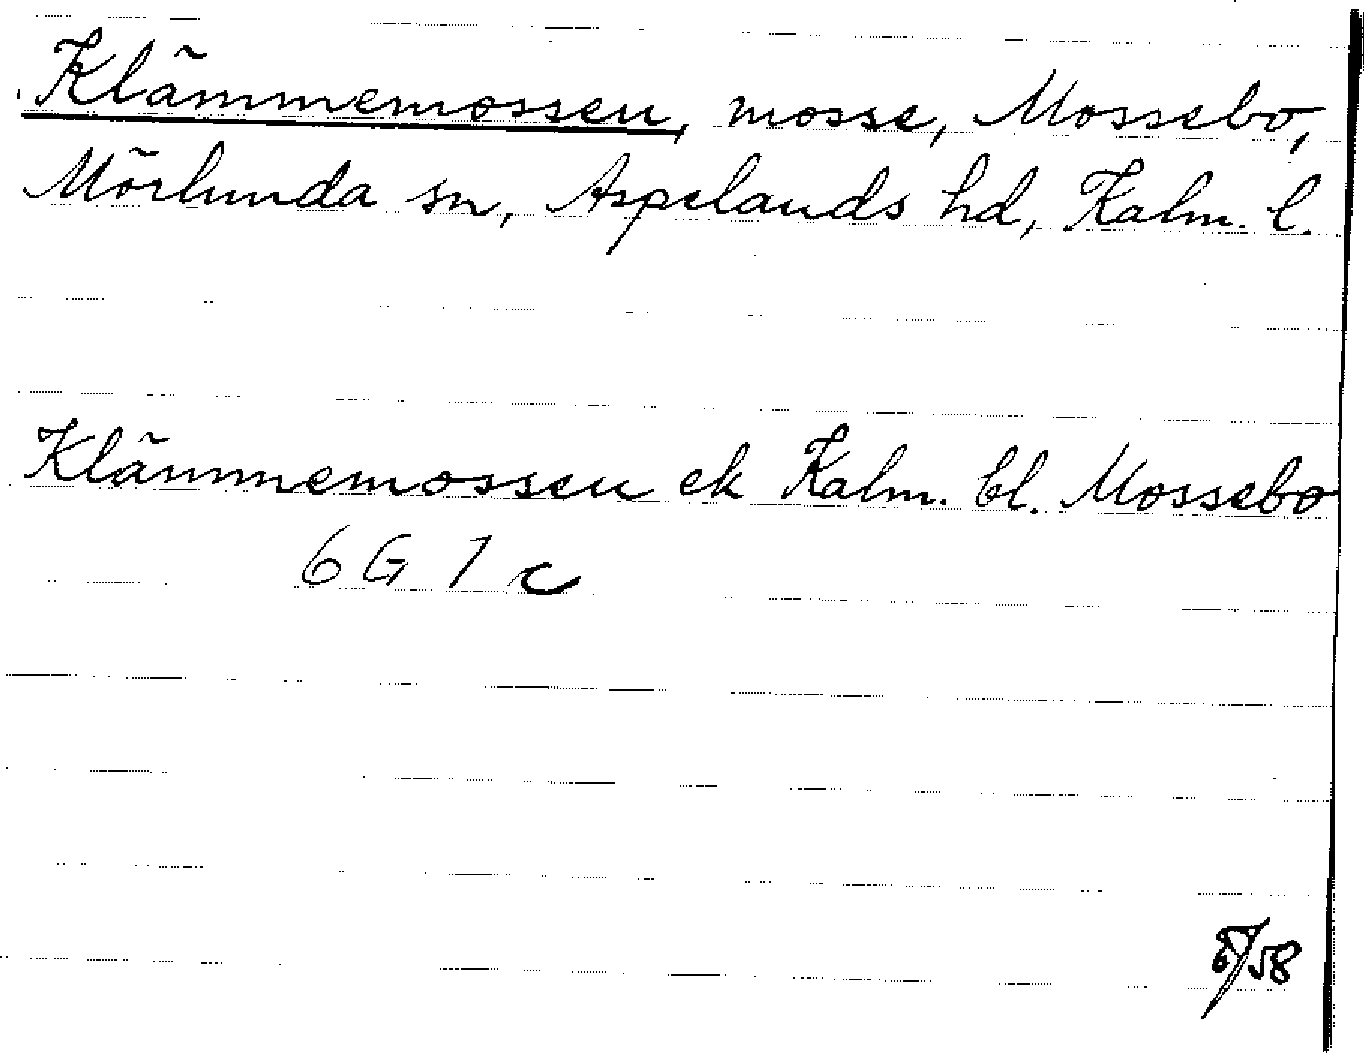 Klämmemossen, mosse, Mossebo,
Mörlunda sn, Aspelands hd, Kalm. l.
Klämmemossen ek Kalm. bl. Mossebo
6 G 1 c